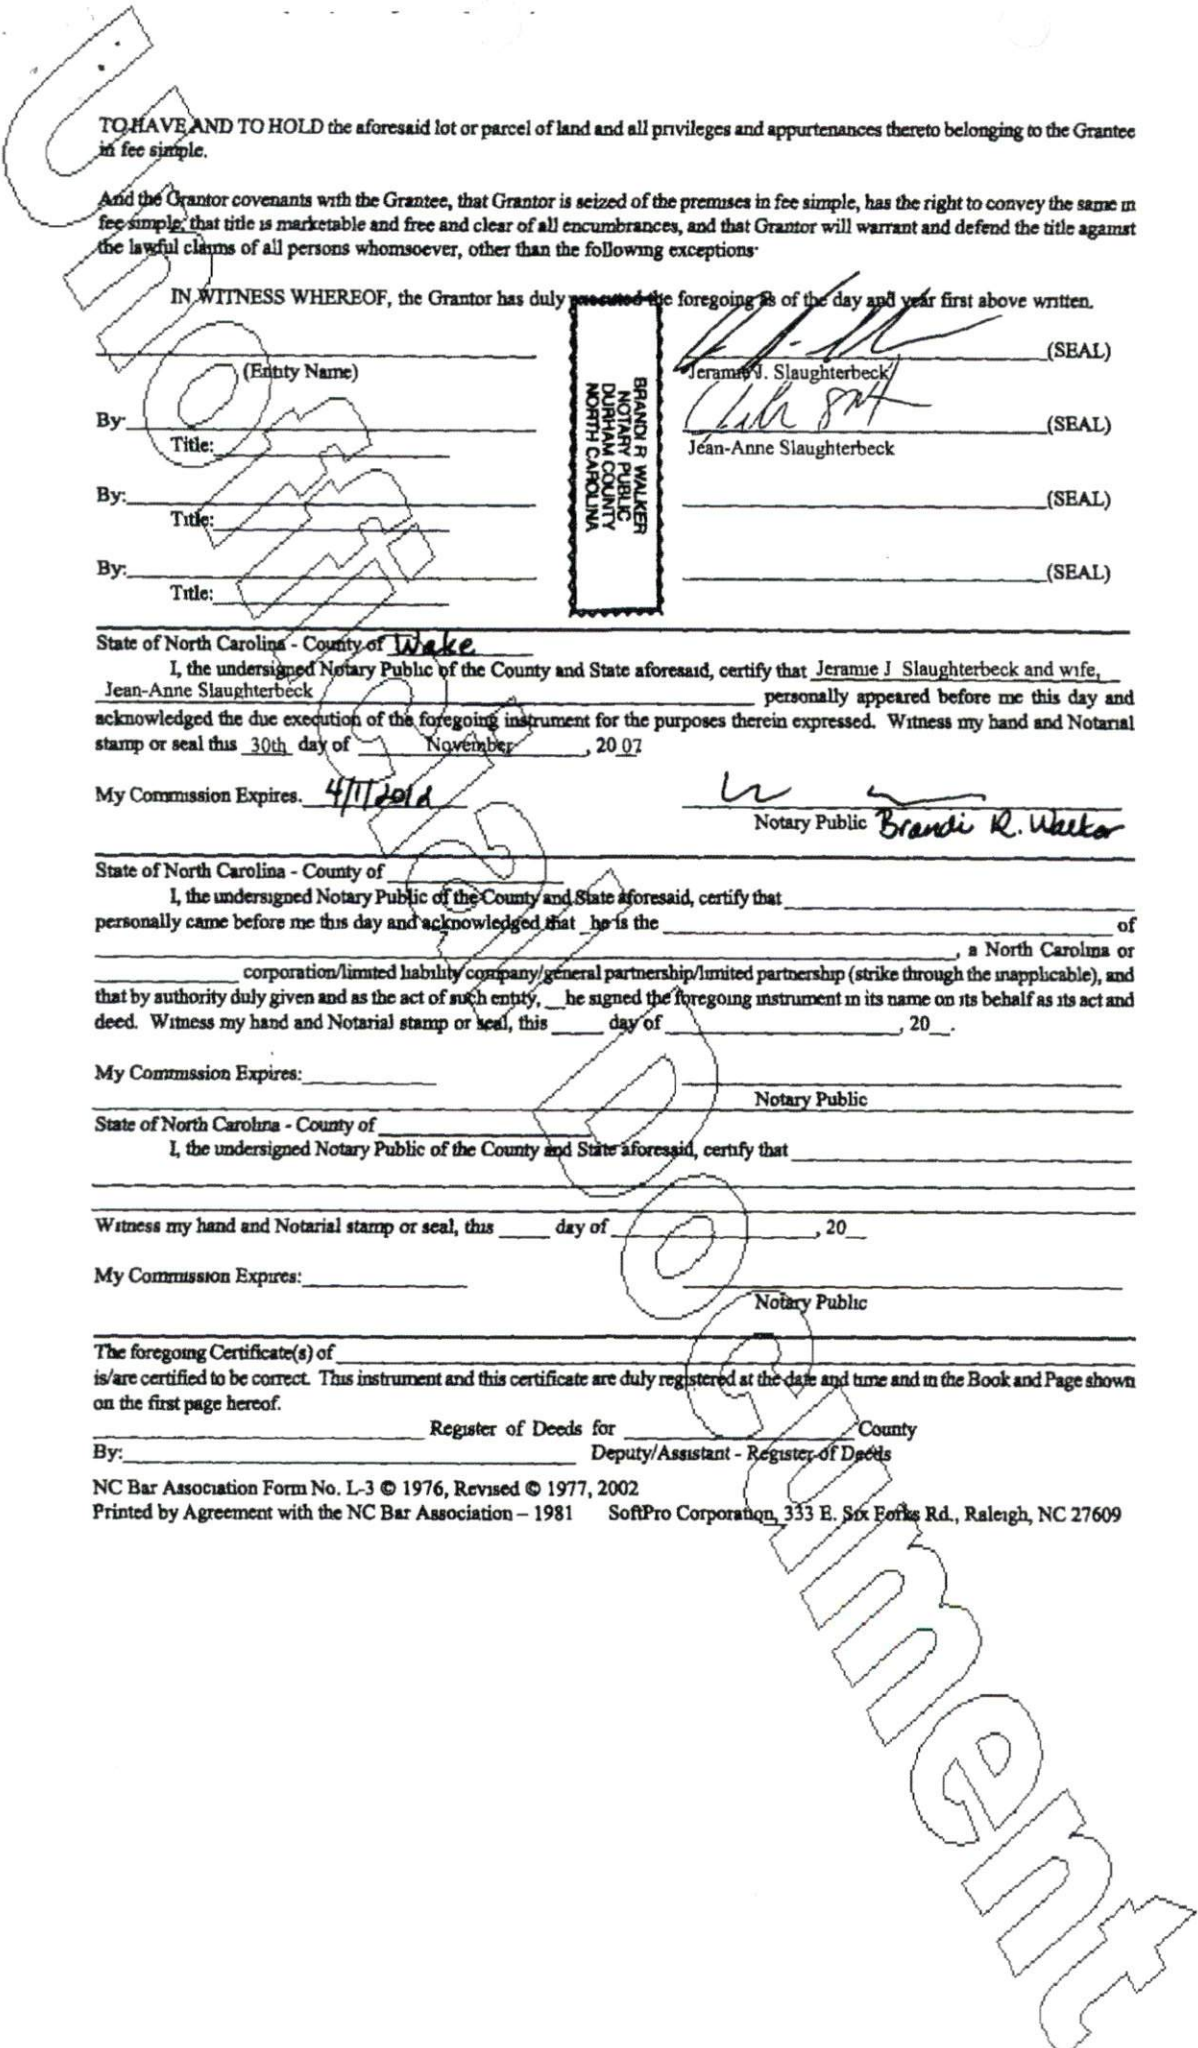 TO HAVE AND TO HOLD the aforesaid lot or parcel of land and all privileges and appurtenances thereto belonging to the Grantee
in fee simple.
And the Grantor covenants with the Grantee, that Grantor is seized of the premises in fee simple, has the right to convey the same in
fee simple, that title is marketable and free and clear of all encumbrances, and that Grantor will warrant and defend the title against
the lawful claims of all persons whomsoever, other than the following exceptions
IN WITNESS WHEREOF, the Grantor has duly executed the foregoing as of the day and year first above written.
(SEAL)
(Entity Name) Jeramie J. Slaughterbeck
By: (SEAL)
Title: Jean-Anne Slaughterbeck
By: (SEAL)
Title:
By: (SEAL)
Title:
BRANDI R WALKER
NOTARY PUBLIC
DURHAM COUNTY
NORTH CAROLINA
State of North Carolina - County of Wake
I, the undersigned Notary Public of the County and State aforesaid, certify that Jeramie J Slaughterbeck and wife,
Jean-Anne Slaughterbeck personally appeared before me this day and
acknowledged the due execution of the foregoing instrument for the purposes therein expressed. Witness my hand and Notarial
stamp or seal this 30th day of November, 20 07
My Commission Expires. 4/11/2012
Notary Public Brandi R. Walker
State of North Carolina - County of
I, the undersigned Notary Public of the County and State aforesaid, certify that
personally came before me this day and acknowledged that _he is the of
, a North Carolina or
corporation/limited liability company/general partnership/limited partnership (strike through the inapplicable), and
that by authority duly given and as the act of such entity, __he signed the foregoing instrument in its name on its behalf as its act and
deed. Witness my hand and Notarial stamp or seal, this _____ day of , 20__.
My Commission Expires:
Notary Public
State of North Carolina - County of
I, the undersigned Notary Public of the County and State aforesaid, certify that
Witness my hand and Notarial stamp or seal, this _____ day of , 20__
My Commission Expires:
Notary Public
The foregoing Certificate(s) of
is/are certified to be correct. This instrument and this certificate are duly registered at the date and time and in the Book and Page shown
on the first page hereof.
Register of Deeds for County
By: Deputy/Assistant - Register of Deeds
NC Bar Association Form No. L-3 © 1976, Revised © 1977, 2002
Printed by Agreement with the NC Bar Association – 1981 SoftPro Corporation, 333 E. Six Forks Rd., Raleigh, NC 27609
Unofficial Document